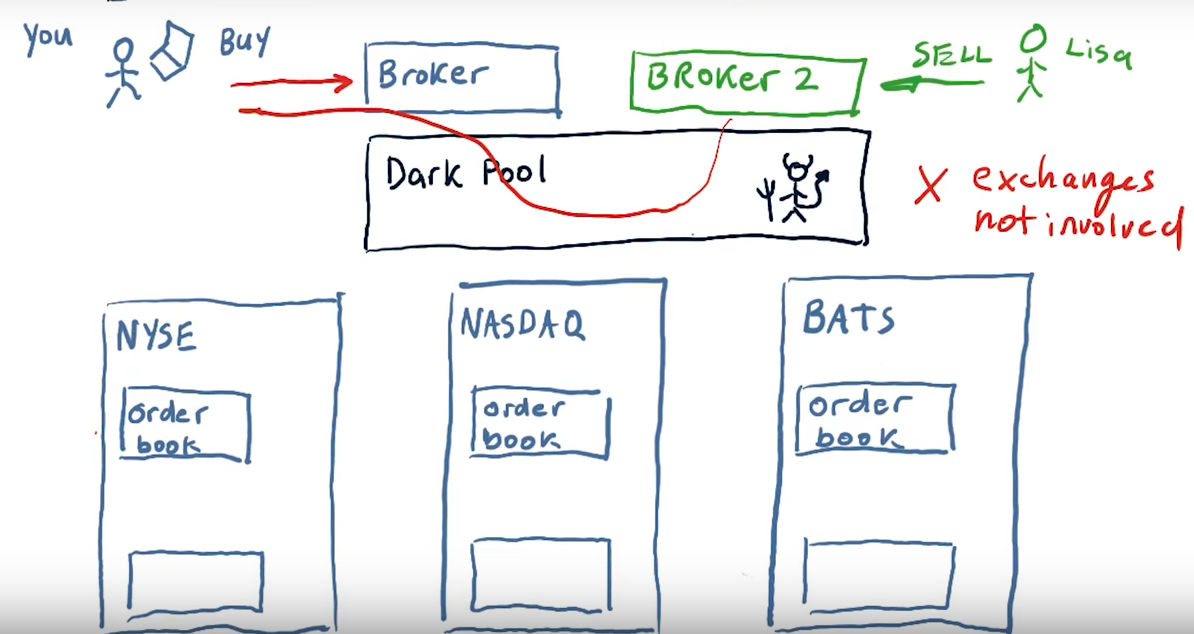 You
Buy
Broker
BRoKer 2
SELL
Lisa
Dark Pool
X exchanges
not involved
NYSE
order
book
NASDAQ
order
book
BATS
order
book